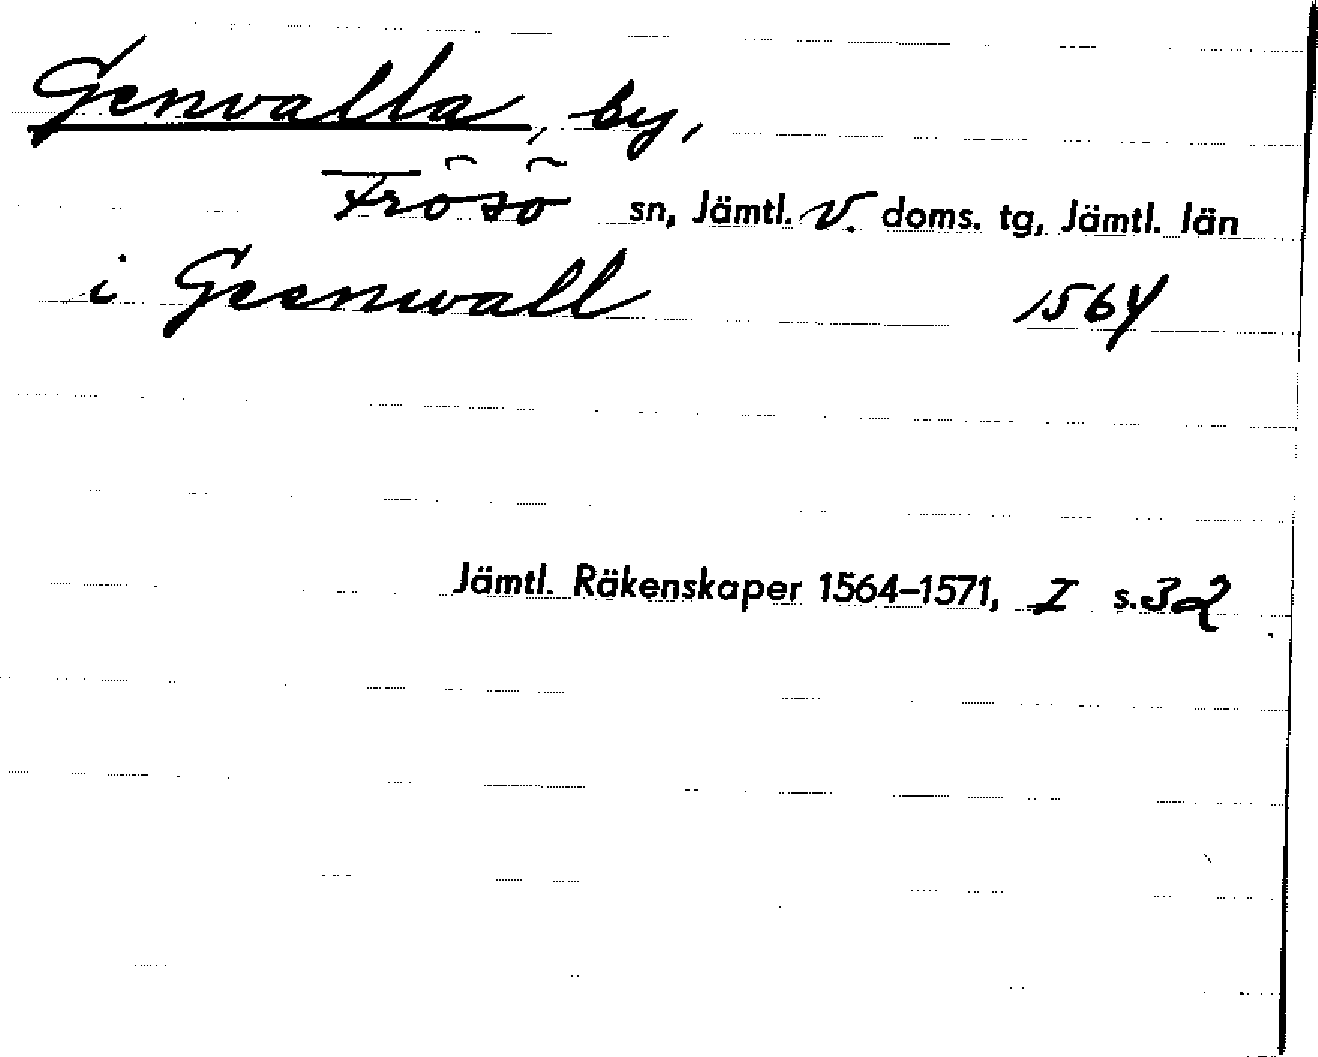 Genvalla, by,
Frösö sn, Jämtl. V. doms. tg, Jämtl. län
i Geenwall 1564
Jämtl. Räkenskaper 1564–1571, I s. 32